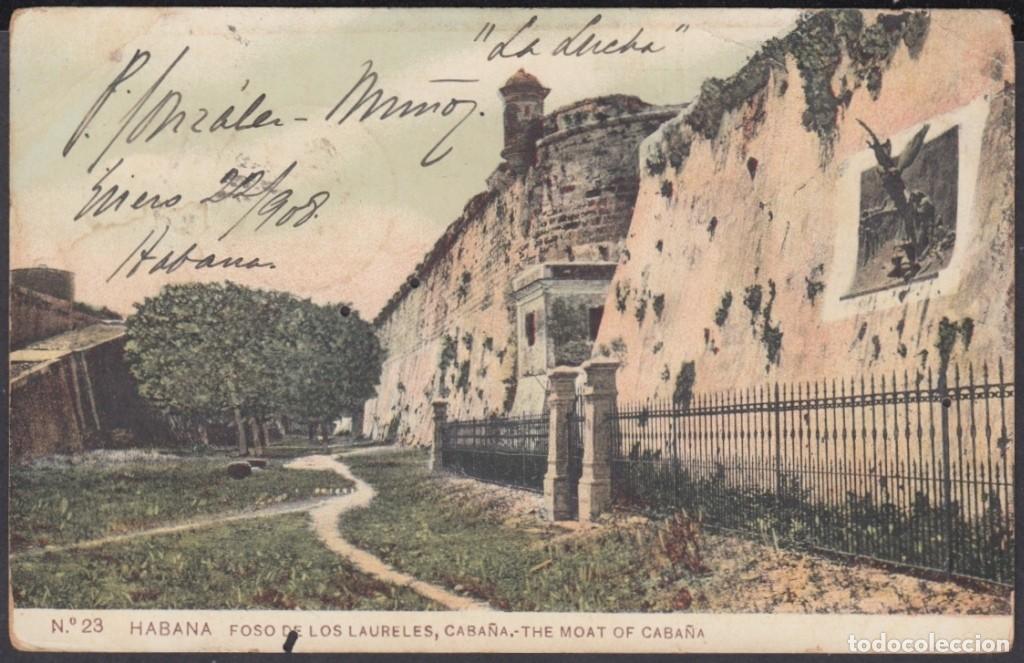 "La Lucha"
P. González-Muñoz.
Enero 22/908.
Habana.
N.º 23 HABANA FOSO DE LOS LAURELES, CABAÑA.-THE MOAT OF CABAÑA
todocoleccion